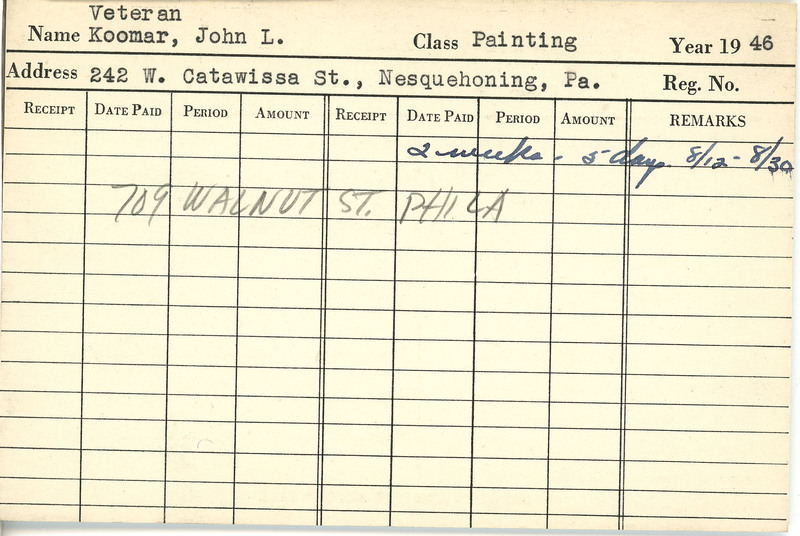 Veteran
Name Koomar, John L. Class Painting Year 19 46
Address 242 W. Catawissa St., Nesquehoning, Pa. Reg. No.
RECEIPT DATE PAID PERIOD AMOUNT RECEIPT DATE PAID PERIOD AMOUNT REMARKS
2 weeks - 5 days 8/12 - 8/30
709 WALNUT ST. PHILA